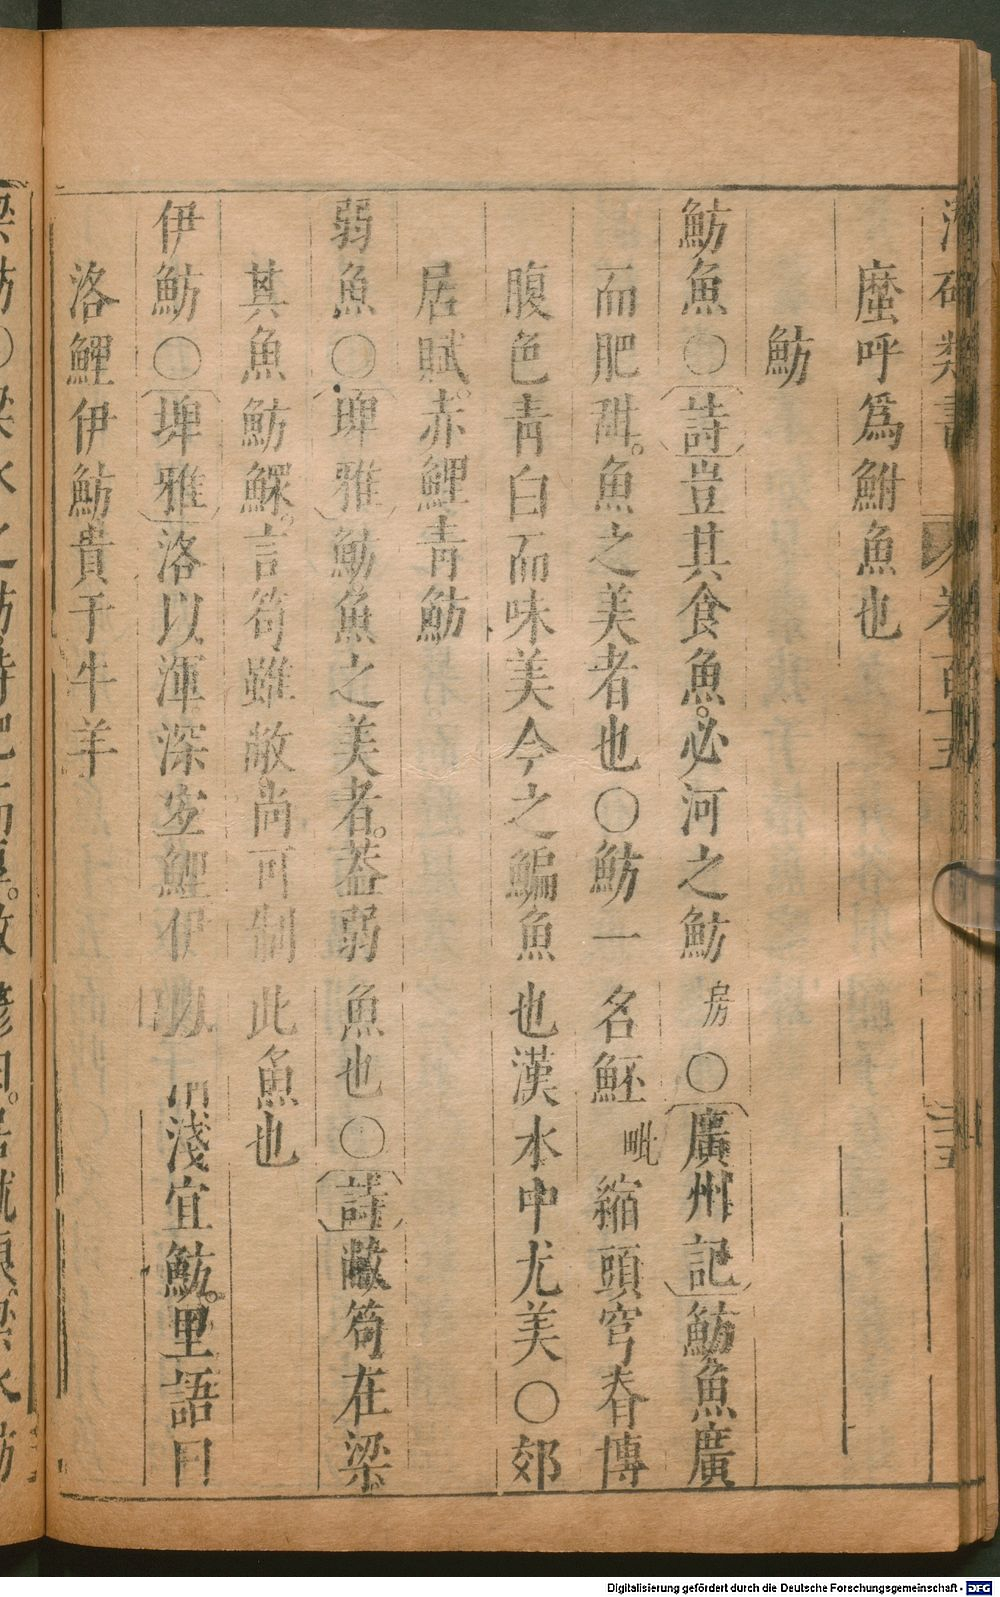 蠻呼爲鮒魚也
魴
魴魚〇詩豈其食魚。必河之魴房〇廣州記魴魚廣
而肥甜。魚之美者也〇魴一名魾毗縮頭穹脊博
腹色青白而味美今之鯿魚也漢水中尤美〇郊
居賦。赤鯉青魴
弱魚〇埤雅魴魚之美者。葢弱魚也〇詩敝笱在梁
其魚魴鰥。言笱雖敝尚可制此魚也
伊魴〇埤雅洛以渾深宜鯉伊以清淺宜魴。里語曰
洛鯉伊魴貴于牛羊
類書 卷百十五
Digitalisierung gefördert durch die Deutsche Forschungsgemeinschaft - DFG